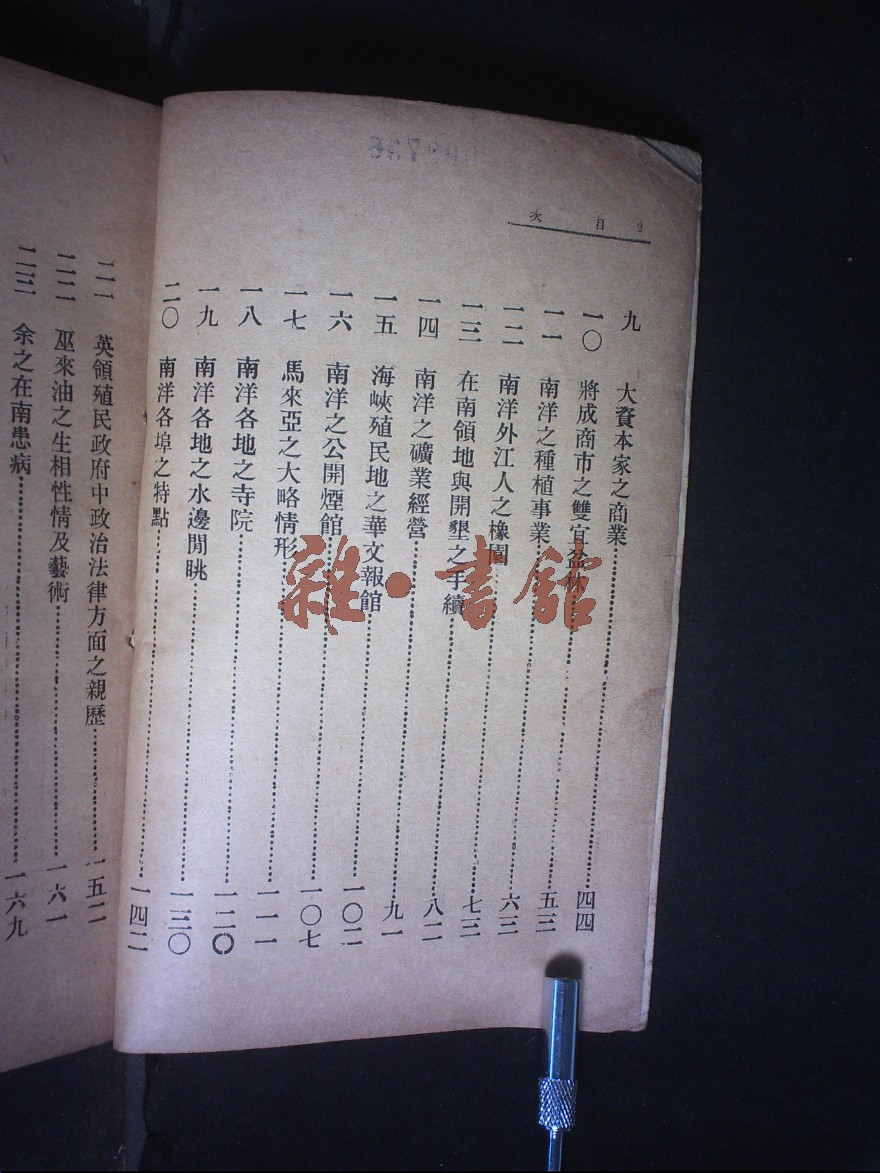 2 目 次
九 大資本家之商業……四四
一〇 將成商市之雙宜盆林……五三
一一 南洋之種植事業……六三
一二 南洋外江人之橡園……七三
一三 在南領地與開墾之手續……八二
一四 南洋之礦業經營……九一
一五 海峽殖民地之華文報館……一〇二
一六 南洋之公開煙館……一〇七
一七 馬來亞之大略情形……一一一
一八 南洋各地之寺院……一二〇
一九 南洋各地之水邊閒眺……一三〇
二〇 南洋各埠之特點……一四二
二一 英領殖民政府中政治法律方面之親歷……一五二
二二 巫來油之生相性情及藝術……一六一
二三 余之在南患病……一六九
雜·書館